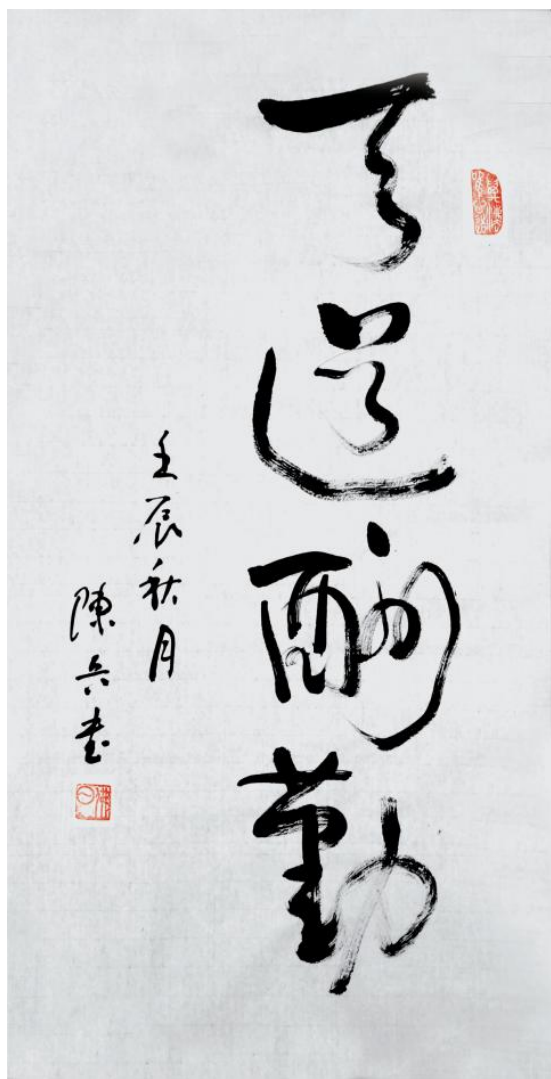 天道酬勤
壬辰秋月
陳兵书